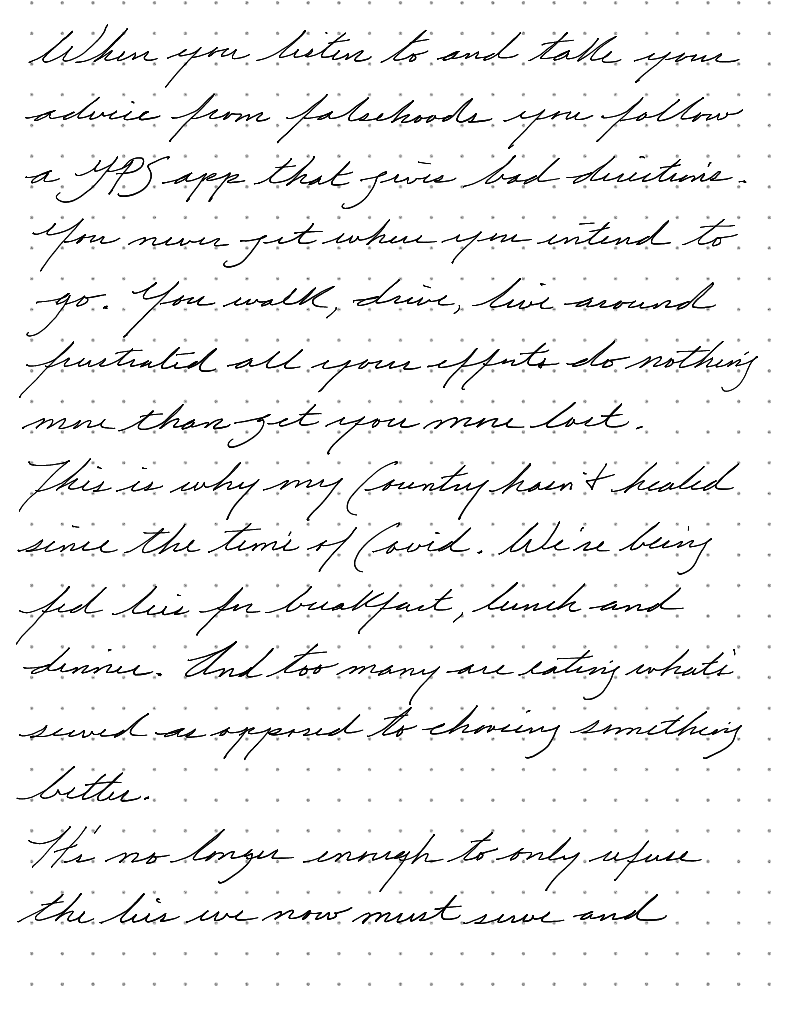 When you listen to and take your
advice from falsehoods you follow
a GPS app that gives bad directions.
You never get where you intend to
go. You walk, drive, live around
frustrated all your efforts do nothing
more than get you more lost.
This is why my Country hasn't healed
since the time of Covid. We're being
fed lies for breakfast, lunch and
dinner. And too many are eating what's
served as opposed to choosing something
better.
It's no longer enough to only refuse
the lies we now must serve and